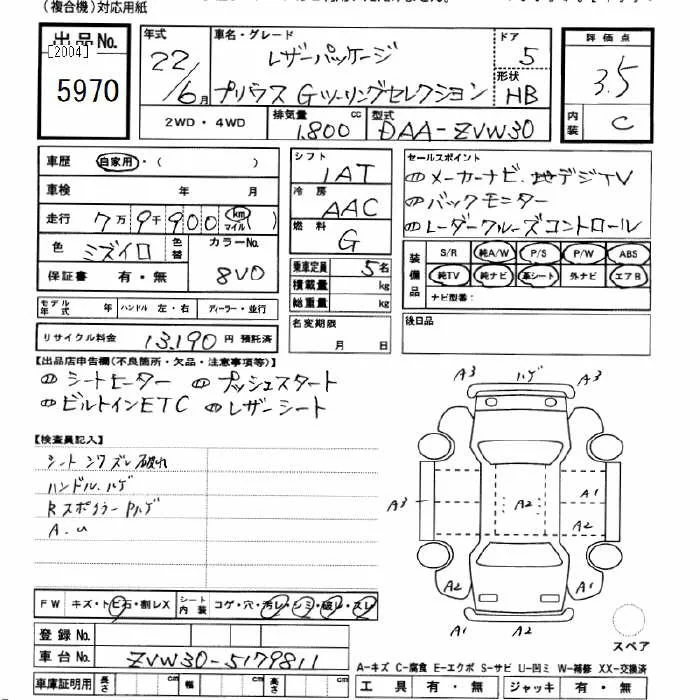 (複合機)対応用紙
出品No. [2004] 5970
年式 22/6月
車名・グレード レザーパッケージ
プリウス Gツーリングセレクション
ドア 5
形状 HB
評価点 3.5
内装 C
2WD・4WD 排気量 1,800 cc 型式 DAA-ZVW30
車歴 自家用・( )
車検 年 月
走行 7万9千900 km マイル( )
色 ミズイロ 色替 カラーNo. 8V0
保証書 有・無
シフト IAT
冷房 AAC
燃料 G
乗車定員 5名
積載量 kg
総重量 kg
セールスポイント
① メーカーナビ・地デジTV
① バックモニター
① レーダークルーズコントロール
装備品 S/R 純A/W P/S P/W ABS
純TV 純ナビ 革シート 外ナビ エアB
ナビ型番:
モデル年式 年 ハンドル 左・右 ディーラー・並行
リサイクル料金 13,190 円 預託済
名変期限 月 日
後日品
【出品店申告欄(不良箇所・欠品・注意事項等)】
① シートヒーター ① プッシュスタート
① ビルトインETC ① レザーシート
【検査員記入】
シート シワ スレ 破れ
ハンドル ハゲ
Rスポイラー Pハゲ
A.U
A3 ハゲ A3
A3 A2 A1
A2
A2 A2
A1 A1
FW キズ・トビ石・割レX シート内装 コゲ・穴・汚レ・シミ・破レ・スレ
登録No.
車台No. ZVW30-5179811
スペア
A-キズ C-腐食 E-エクボ S-サビ U-凹ミ W-補修 XX-交換済
車庫証明用 長さ cm 幅 cm 高さ cm
工具 有・無 ジャッキ 有・無